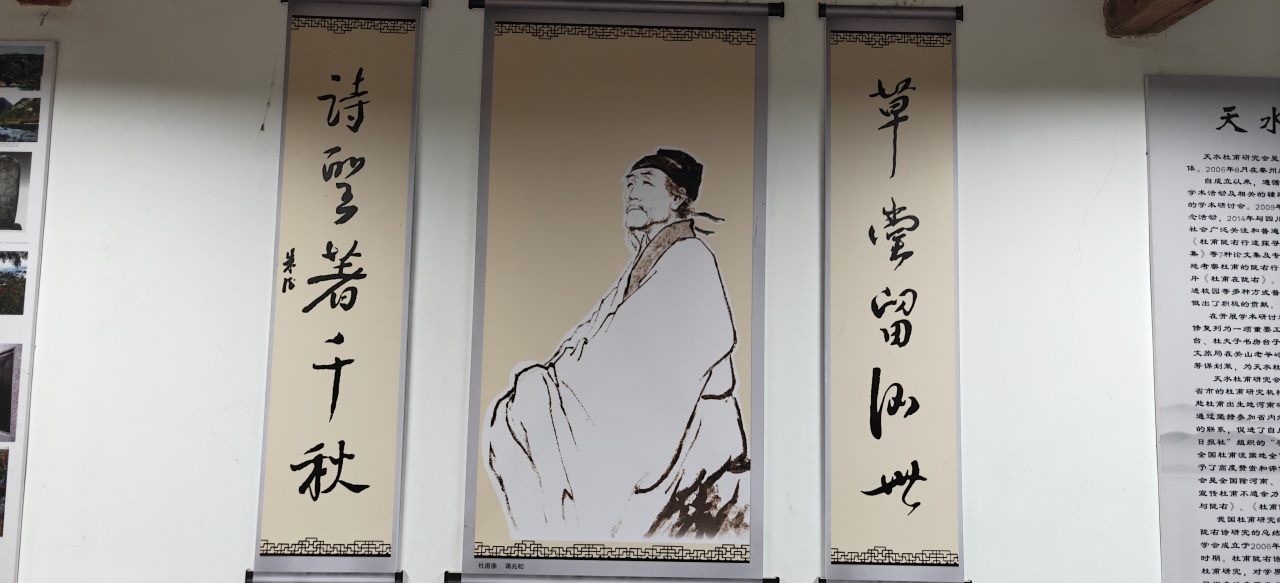 草堂留後世
詩聖著千秋
朱德
杜甫像 蒋兆和
天水
天水杜甫研究会是
体。2006年8月在秦州
自成立以来，遵循
学术活动及相关的
的学术研讨会。2009年
念活动，2014年与四川
社会广泛关注和普遍
《杜甫陇右行迹探寻
集》等7种论文集及专
地考察杜甫的陇右行
片《杜甫在陇右》。
进校园等多种方式普
做出了积极的贡献。
在开展学术研讨
修复列为一项重要工
台、杜夫子书房台子
文旅局在关山老爷岭
筹谋划策，为天水杜
天水杜甫研究会
省市的杜甫研究机构
赴杜甫出生地河南
通过坚持参加省内
的联系，促进了自
日报社”组织的“
全国杜甫流寓地全
予了高度赞赏和评
会是全国除河南、
宣传杜甫不遗余力
与陇右》、《杜甫
我国杜甫研究的
陇右诗研究的总结
学会成立于2006年
时期。杜甫陇右诗
杜甫研究，对学界